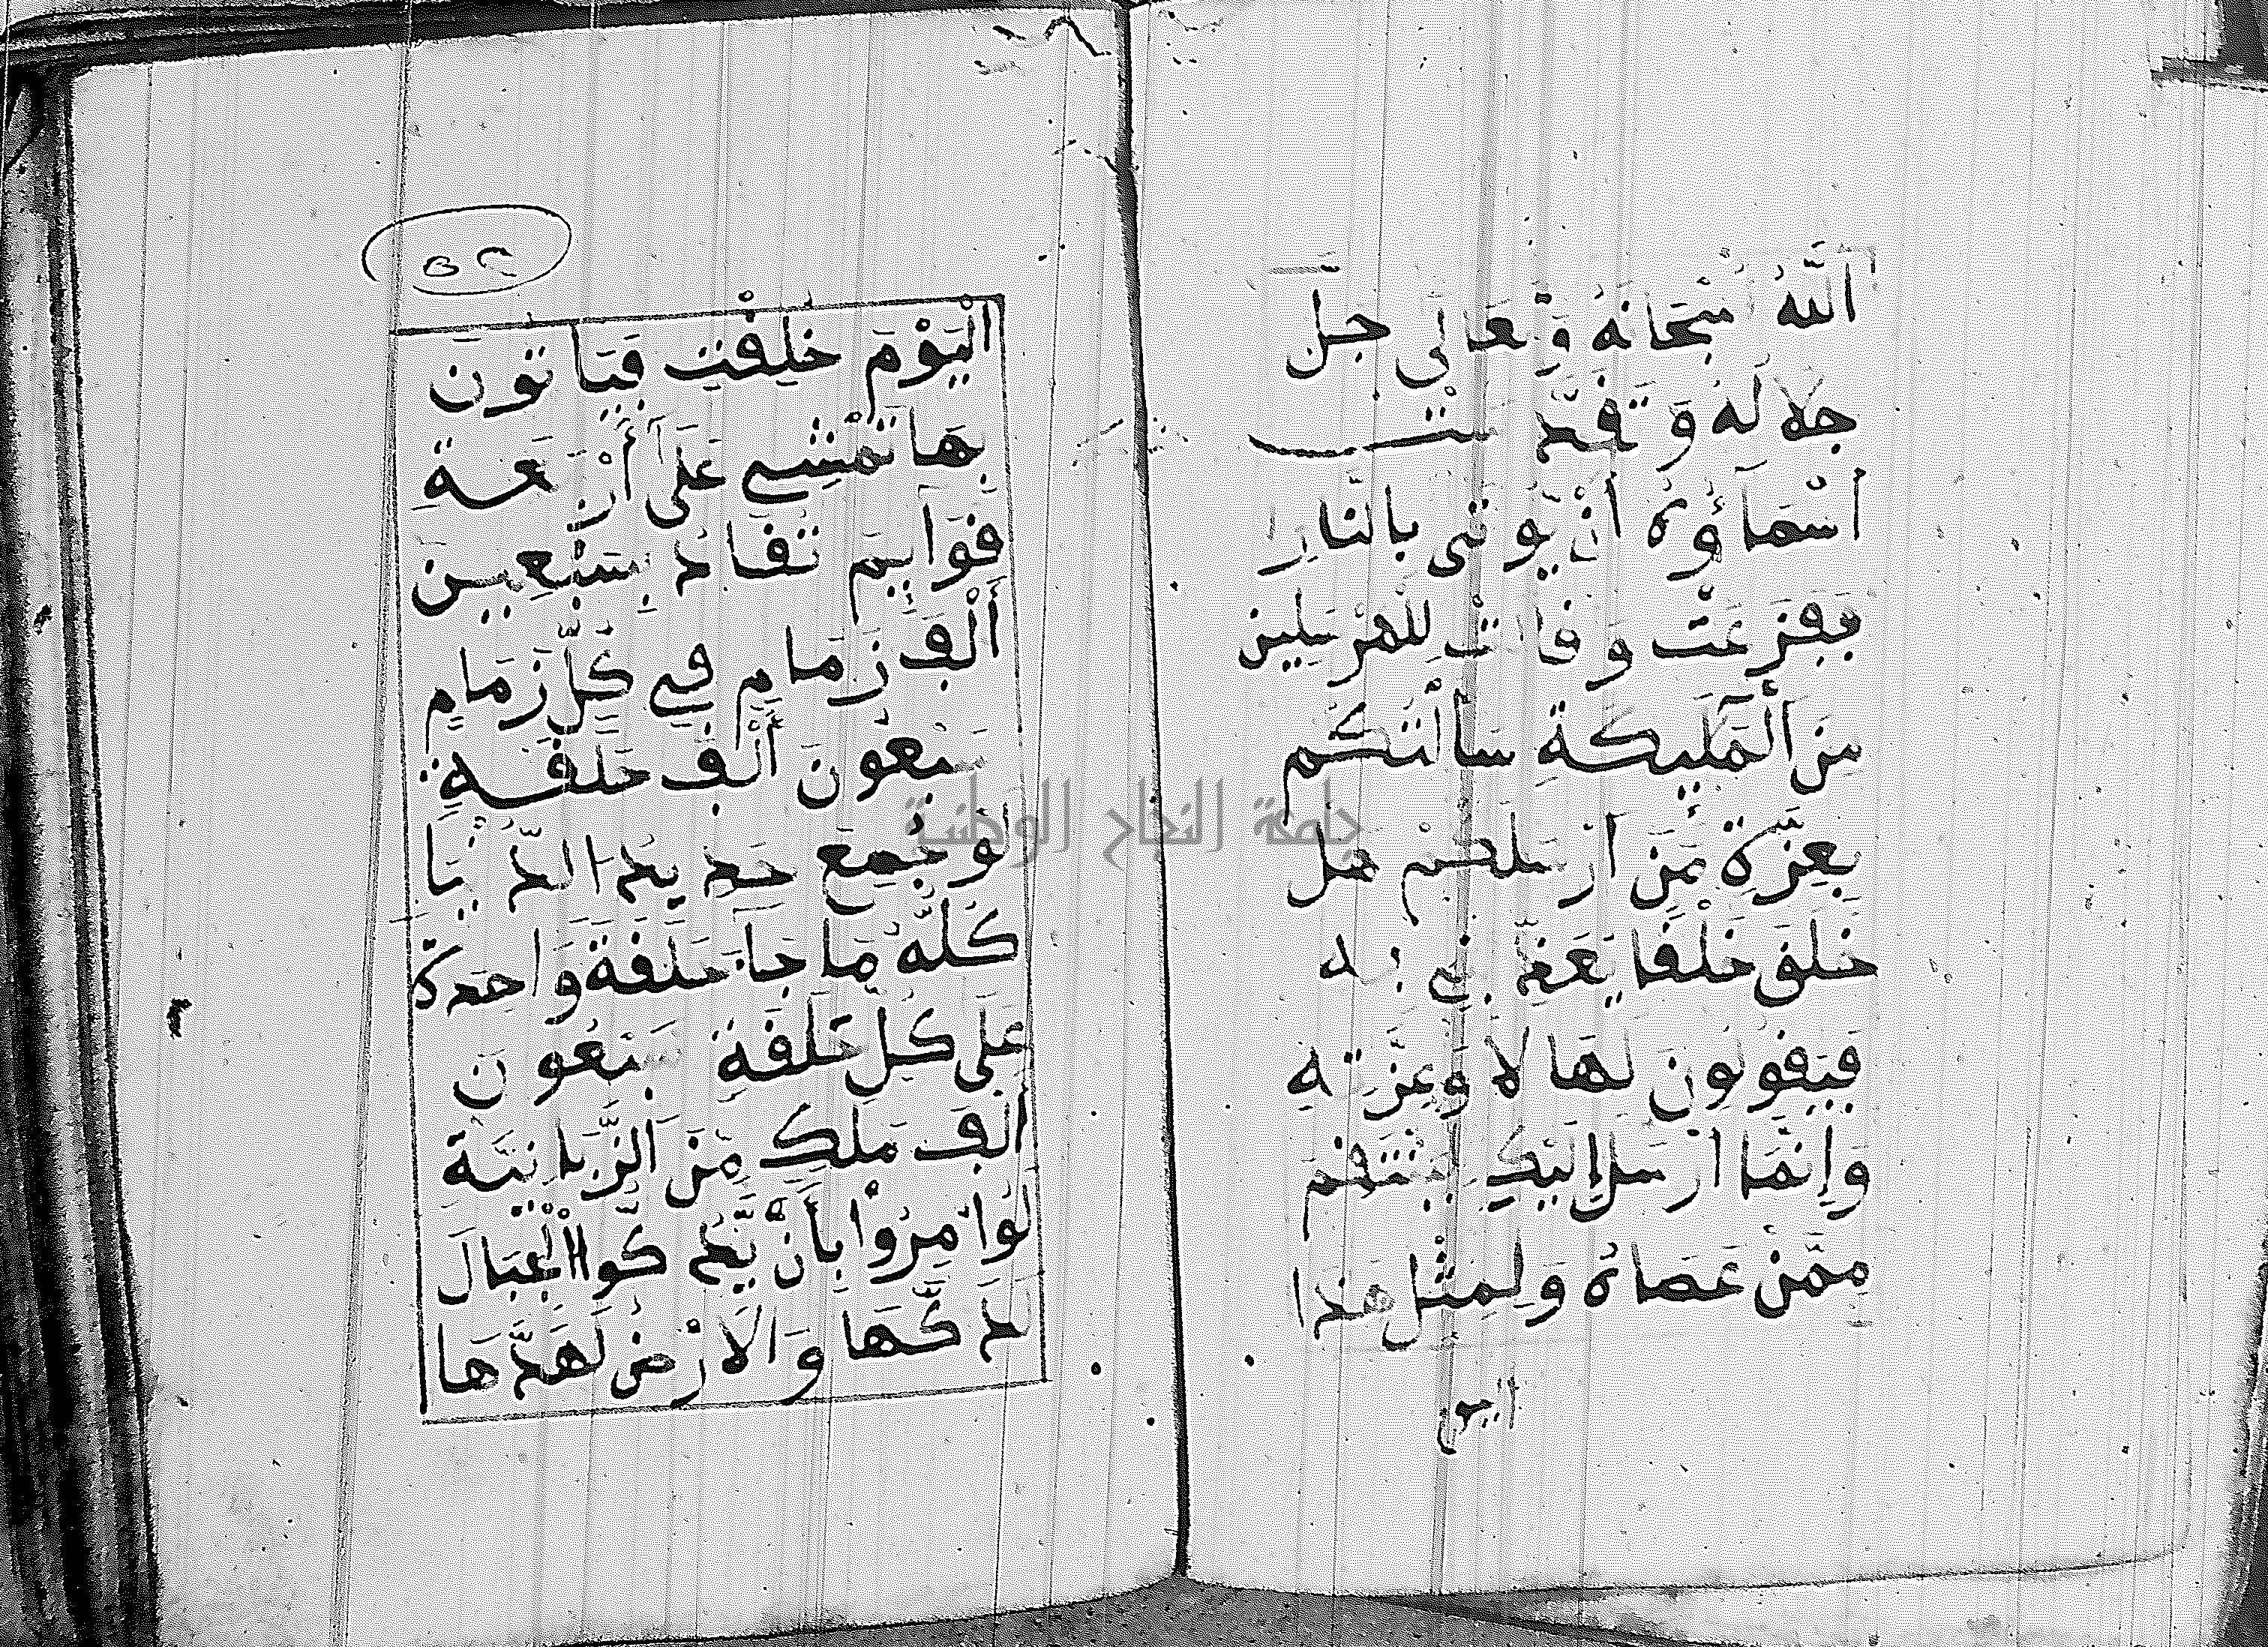 اللَّهُ سُبْحَانَهُ وَتَعَالَى جَلَّ
جَلَالَهُ وَتَقَدَّسَتْ
أَسْمَاؤُهُ أَنْ يُوتَى بِالنَّارِ
فَفَزِعَتْ وَقَالَتْ لِلْمُرْسَلِينَ
مِنَ الْمَلَيِكَةِ سَأَلْتُكُمْ
بِعِزَّةِ مَنْ أَرْسَلَكُمْ هَلْ
خَلَقَ خَلْقًا يُعَذِّبُنِي بِهِ
فَيَقُولُونَ لَهَا لَا وَعِزَّتِهِ
وَإِنَّمَا أَرْسَلَ إِلَيْكِ لِتَنْتَقِمَ
مِمَّنْ عَصَاهُ وَلِمِثْلِ هَذَا
اليوم
٥٢
الْيَوْمِ خُلِقْتِ فَيَاتُونَ
بِهَا تَمْشِي عَلَى أَرْبَعَةِ
قَوَايِمَ تُقَادُ بِسَبْعِينَ
أَلْفَ زِمَامٍ فِي كُلِّ زِمَامٍ
سَبْعُونَ أَلْفَ حَلَقَةٍ
لَوْ جُمِعَ حَدِيدُ الدُّنْيَا
كُلُّهُ مَا جَا حَلَقَةً وَاحِدَةً
عَلَى كُلِّ حَلَقَةٍ سَبْعُونَ
أَلْفَ مَلَكٍ مِّنَ الزَّبَانِيَةِ
لَوْ أُمِرُوا بِأَنْ يَّدُكُّوا الْجِبَالَ
لَدَكَّهَا وَالْأَرْضَ لَهَدَّهَا
جامعة النجاح الوطنية